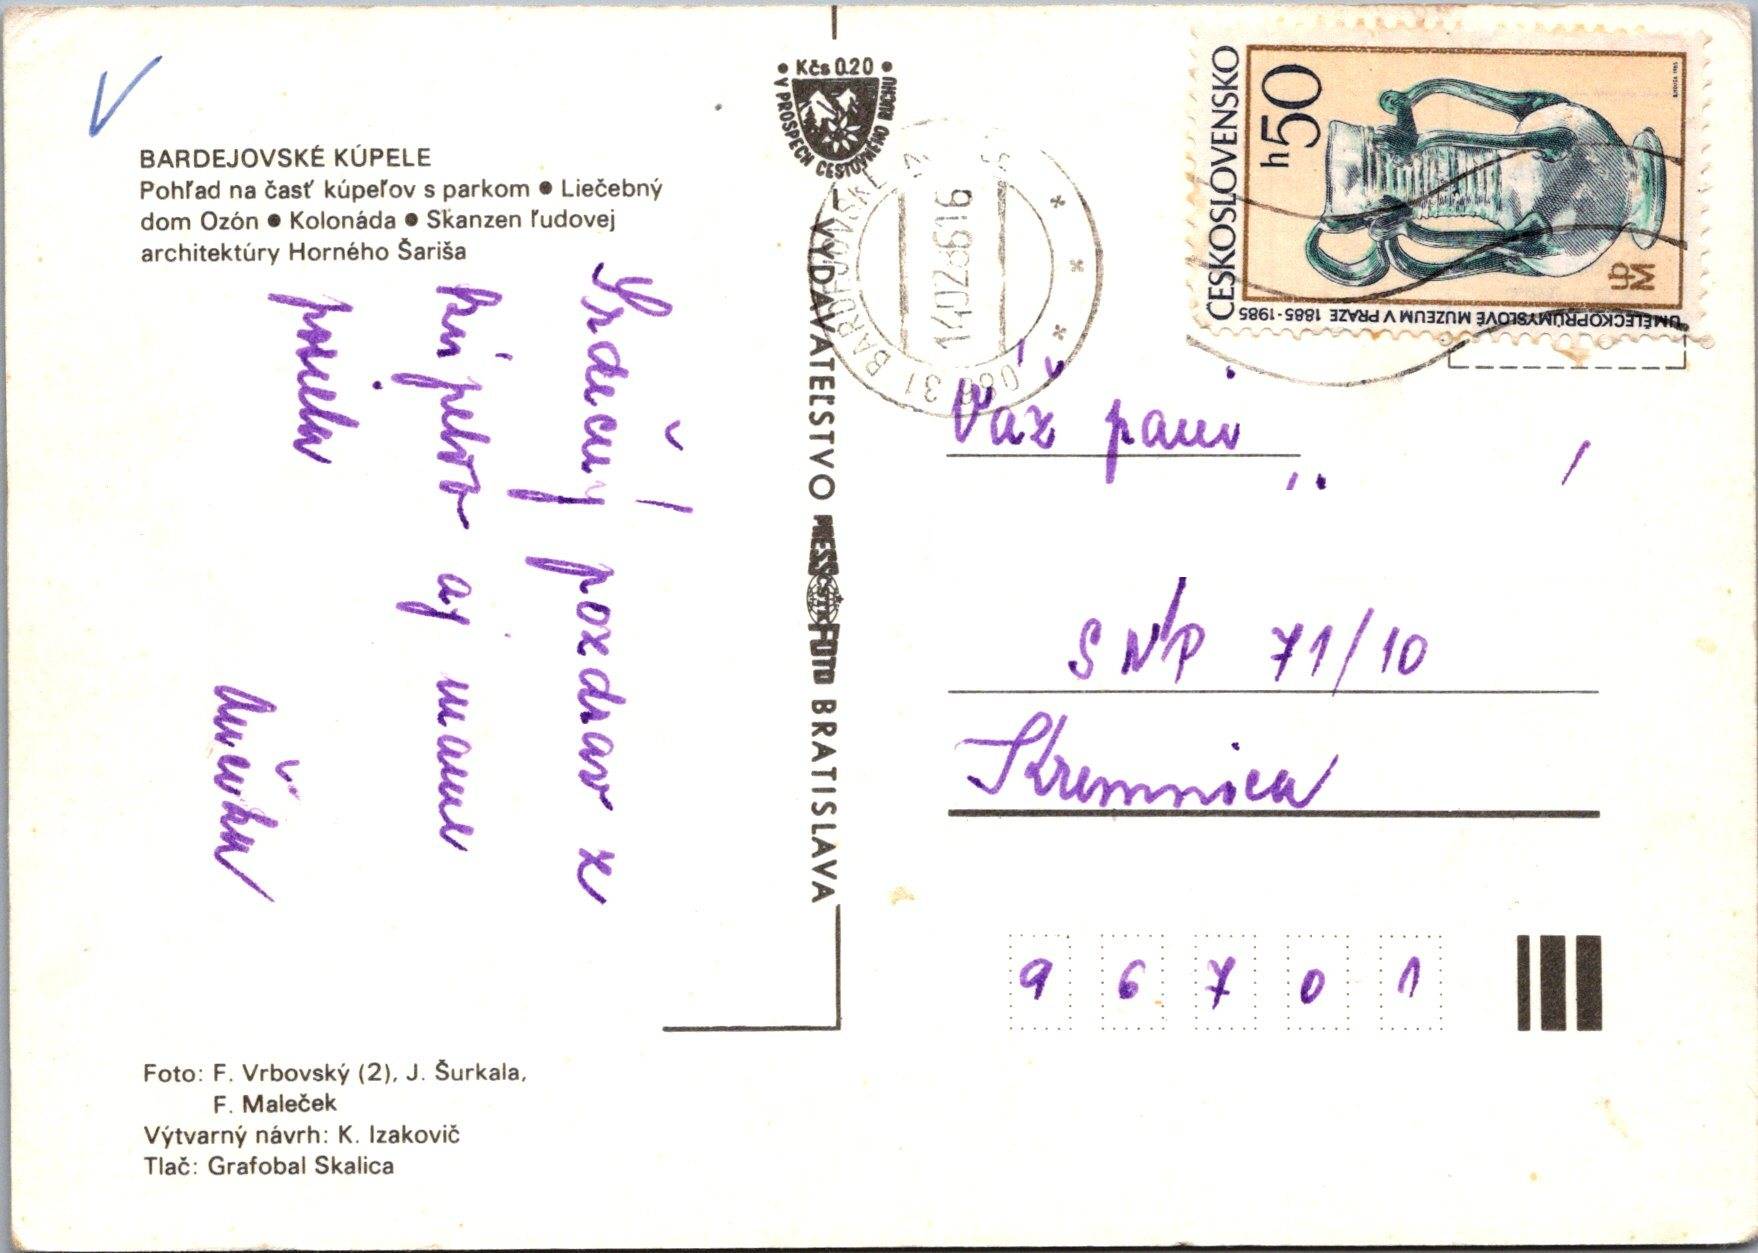 BARDEJOVSKÉ KÚPELE
Pohľad na časť kúpeľov s parkom ● Liečebný
dom Ozón ● Kolonáda ● Skanzen ľudovej
architektúry Horného Šariša
Srdečný pozdrav z
kúpeľov aj mame
posiela
Anička
Foto: F. Vrbovský (2), J. Šurkala,
F. Maleček
Výtvarný návrh: K. Izakovič
Tlač: Grafobal Skalica
• Kčs 0.20 •
V PROSPECH CESTOVNÉHO RUCHU
VYDAVATEĽSTVO PRESSFOTO BRATISLAVA
ČSTK
086 31 BARDEJOVSKÉ
14.02.86 16
ČESKOSLOVENSKO
50 h
UMĚLECKOPRŮMYSLOVÉ MUZEUM V PRAZE 1885-1985
UPM
Váž pani
SNP 71/10
Kremnica
96701